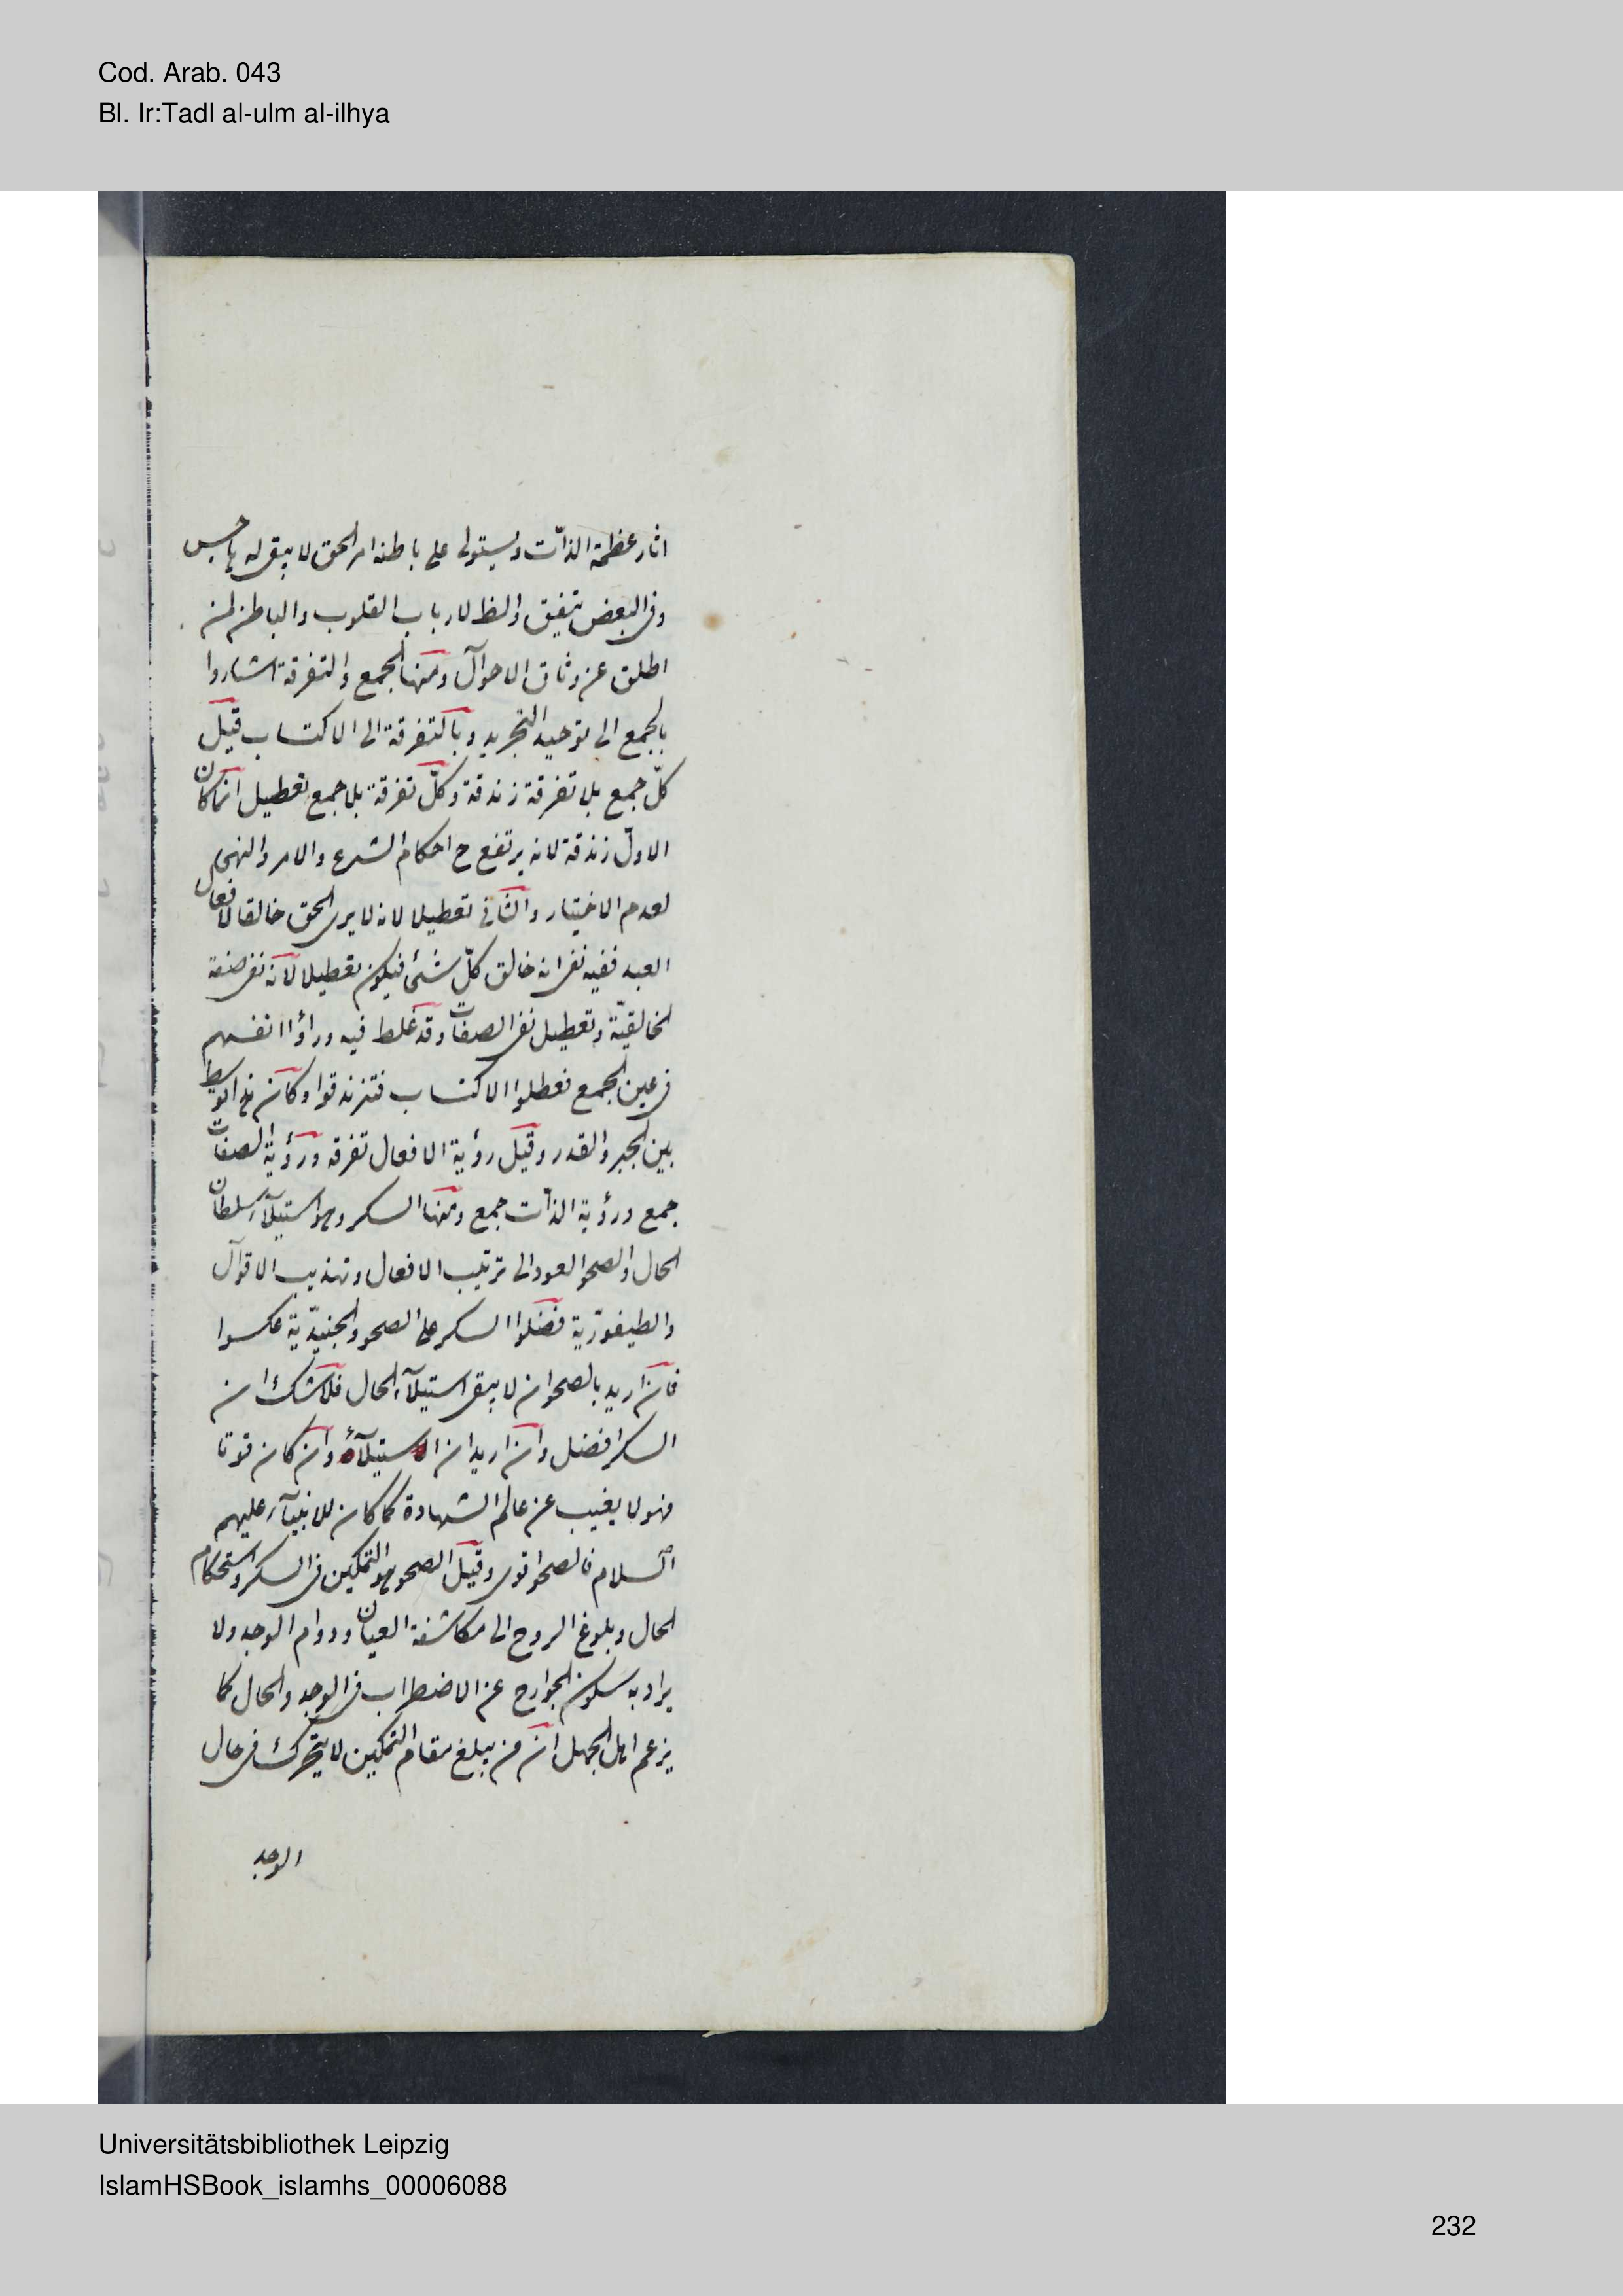 Cod. Arab. 043
Bl. Ir:Tadl al-ulm al-ilhya
اثار عظمة الذات ويستولى على باطنه امر الحق لا يبقى له هاجس
وفى البعض يتفق والظ لارباب القلوب والباطن لمن
اطلق عن وثاق الاحوال ومنها الجمع والتفرقة اشاروا
بالجمع الى توحيد التجريد وبالتفرقة الى الاكتساب قيل
كلّ جمع بلا تفرقة زندقة وكلّ تفرقة بلا جمع تعطيل انما كان
الاوّل زندقة لانه يرتفع ح احكام الشرع والامر والنهى
لعدم الاختيار والثانى تعطيلا لانه لا يرى الحق خالقا لافعال
العبد ففيه نفى انه خالق كلّ شئ فيكون تعطيلا لانه نفى صفة
الخالقيّة وتعطيل نفى الصفات وقد غلط فيه وراؤا انفسهم
فى عين الجمع فعطلوا الاكتساب فتزندقوا وكان هذا توسط
بين الجبر والقدر وقيل رؤية الافعال تفرقه ورؤية الصفات
جمع ورؤية الذات جمع ومنها السكر وهو استيلاء سلطان
الحال والصحو العود الى ترتيب الافعال وتهذيب الاقوال
والطيفوريّة فضلوا السكر على الصحو والجنيديّة عكسوا
فان اريد بالصحو ان لا يبقى استيلاء الحال فلا شك ان
السكر افضل وان اريد ان الاستيلاء وان كان قويا
فهو لا يغيب عن عالم الشهادة كما كان للانبياء عليهم
السلام فالصحو اقوى وقيل الصحو هو التمكين فى السكر واستحكام
الحال وبلوغ الروح الى مكاشفة العيان ودوام الوجد ولا
يراد به سكون الجوارح عن الاضطراب فى الوجد والحال كما
يزعم اهل الجهل ان من يبلغ مقام التمكين لا يتحرك فى حال
الوجد
Universitätsbibliothek Leipzig
IslamHSBook_islamhs_00006088
232